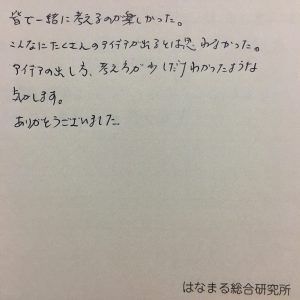 皆で一緒に考えるのが楽しかった。
こんなにたくさんのアイデアが出るとは思わなかった。
アイデアの出し方、考え方が少しだけわかったような
気がします。
ありがとうございました。
はなまる総合研究所